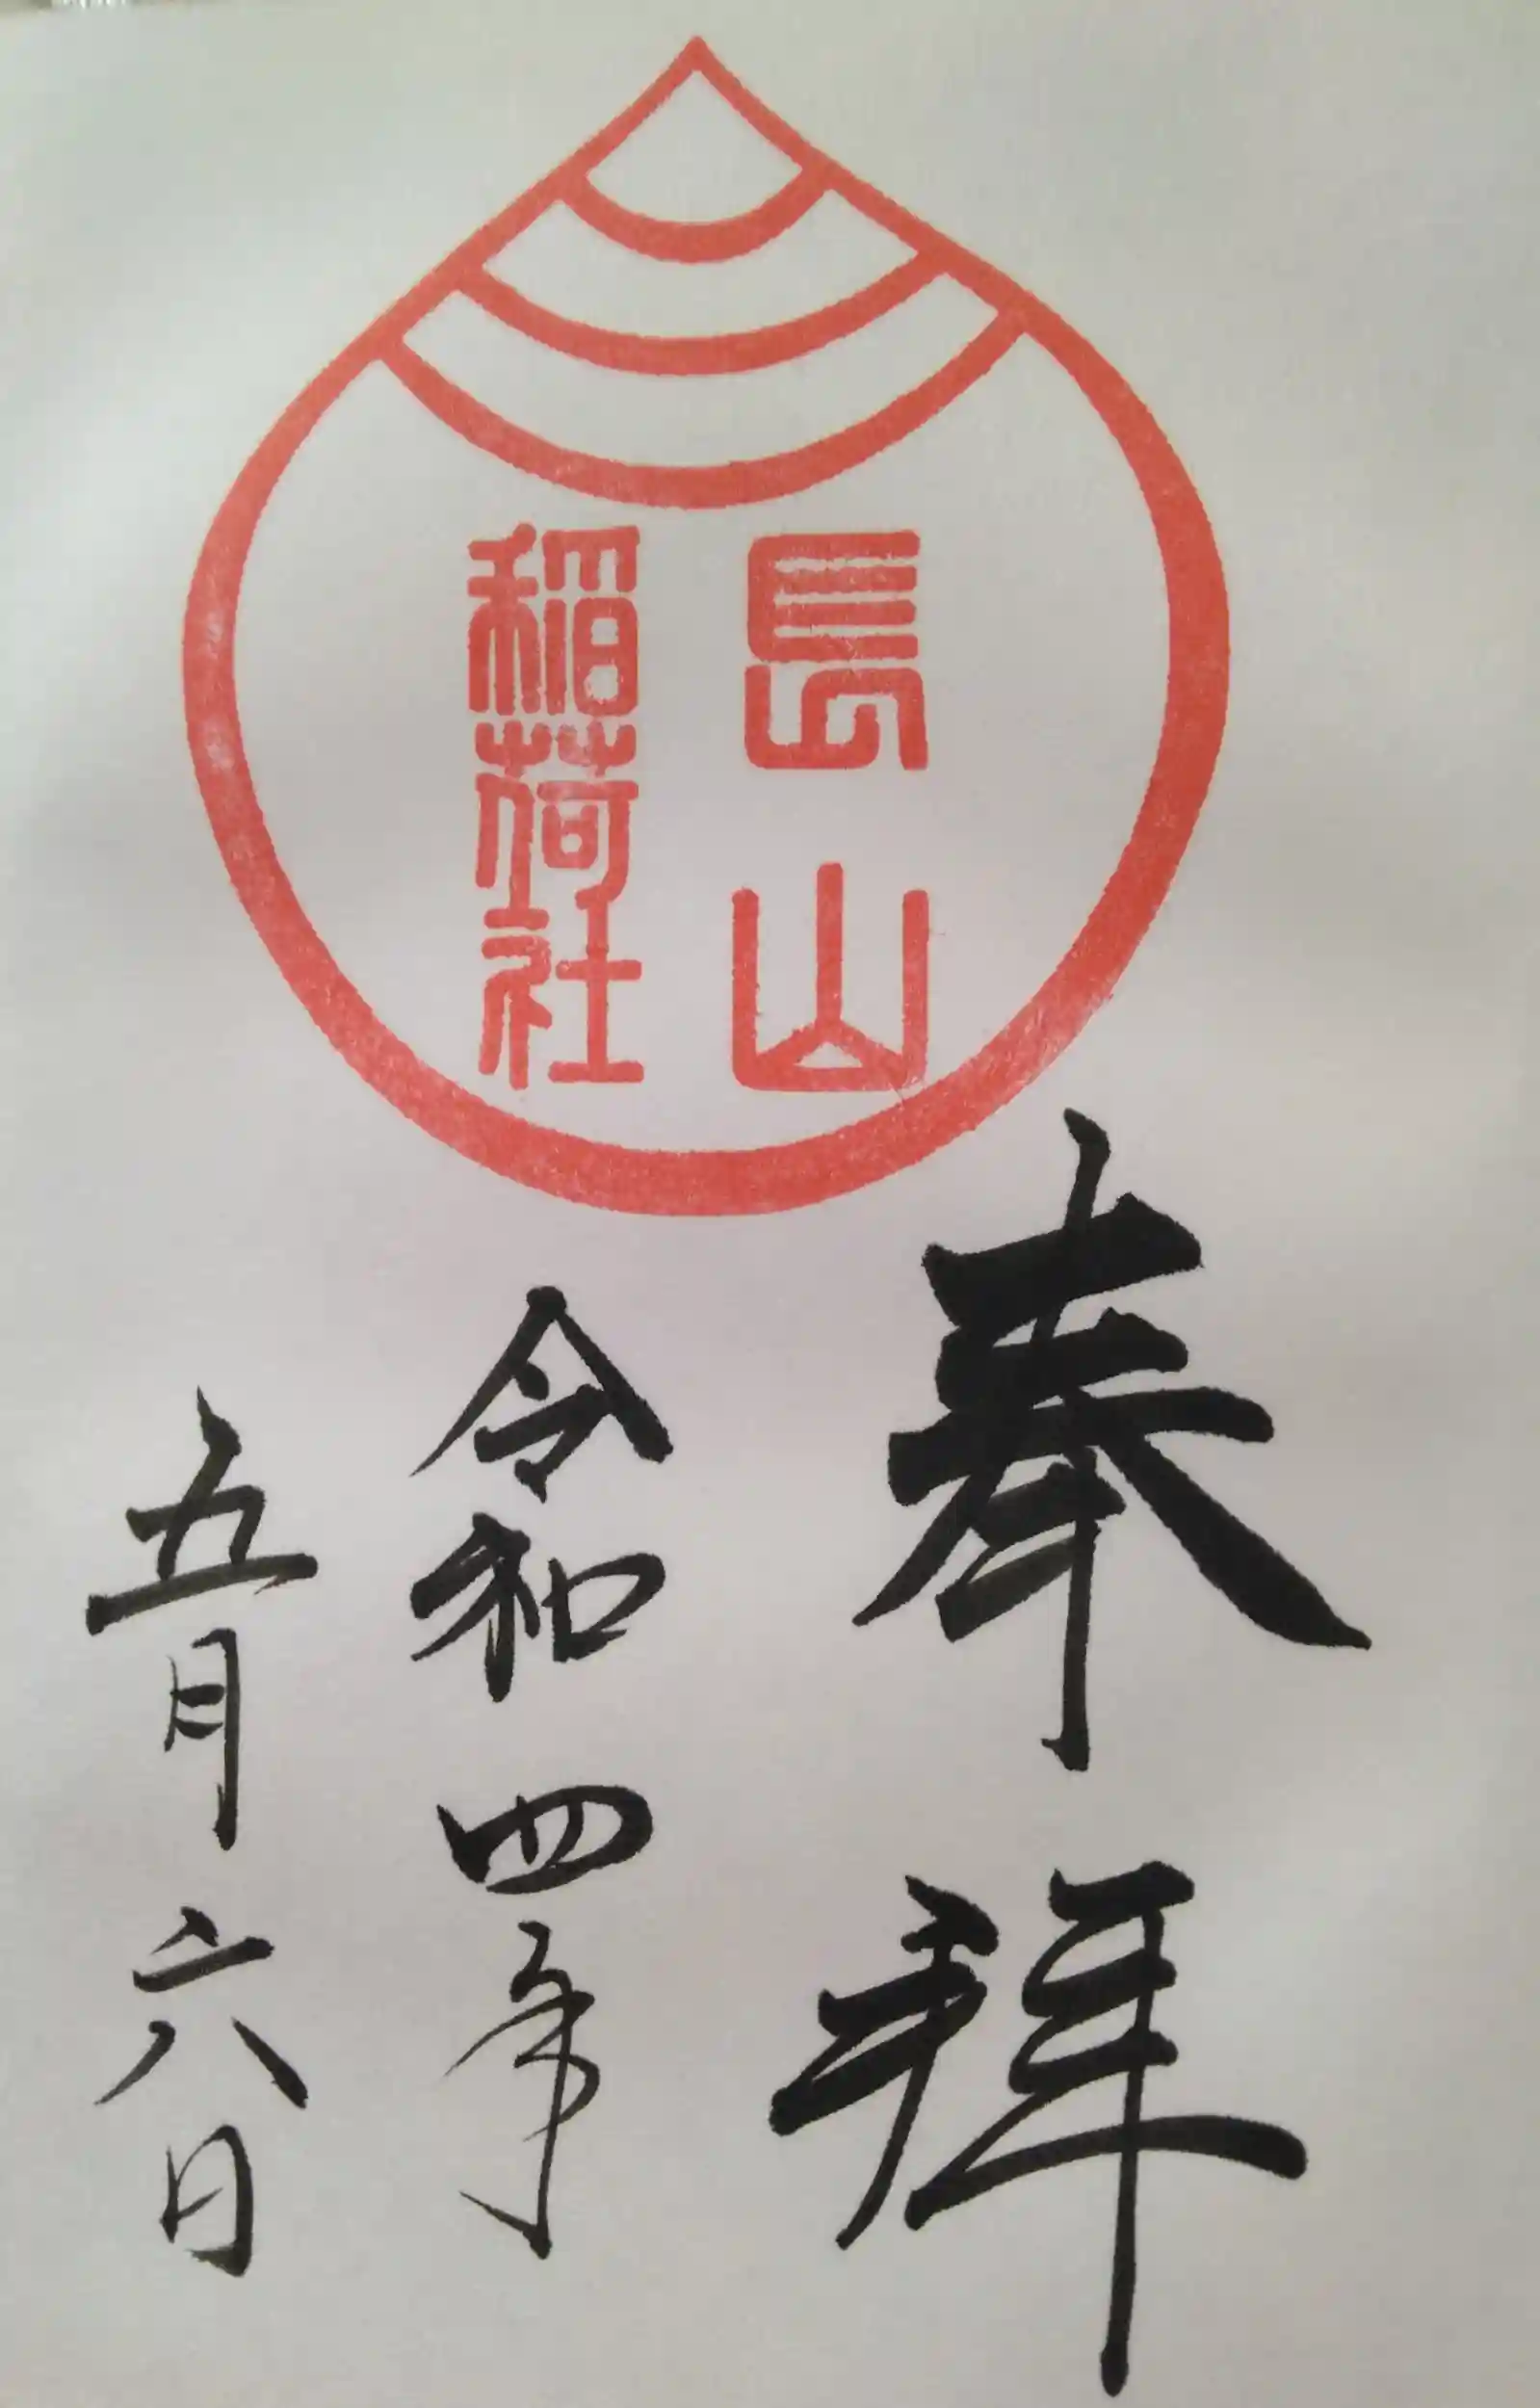 長山
稲荷社
奉拝
令和四年
五月六日